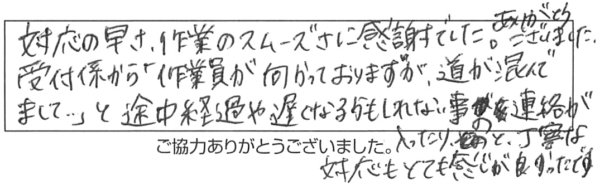 対応の早さ、作業のスムーズさに感謝でした。ありがとうございました。
受付係から「作業員が向かっておりますが、道が混んで
まして…」と途中経過や遅くなるかもしれない事の連絡が
入ったり、と、丁寧な
ご協力ありがとうございました。
対応もとても感じが良かったです